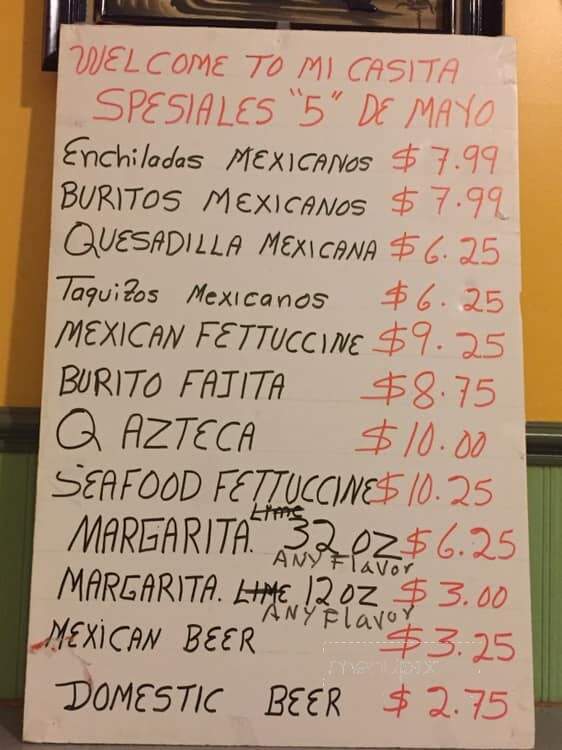 WELCOME TO MI CASITA
SPESIALES "5" DE MAYO
Enchiladas MEXICANOS $7.99
BURITOS MEXICANOS $7.99
QUESADILLA MEXICANA $6.25
Taquitos Mexicanos $6.25
MEXICAN FETTUCCINE $9.25
BURITO FAJITA $8.75
Q AZTECA $10.00
SEAFOOD FETTUCCINE $10.25
LIME
MARGARITA. 32 OZ $6.25
ANY Flavor
MARGARITA. LIME 12 OZ $3.00
ANY Flavor
MEXICAN BEER $3.25
menupix
DOMESTIC BEER $2.75